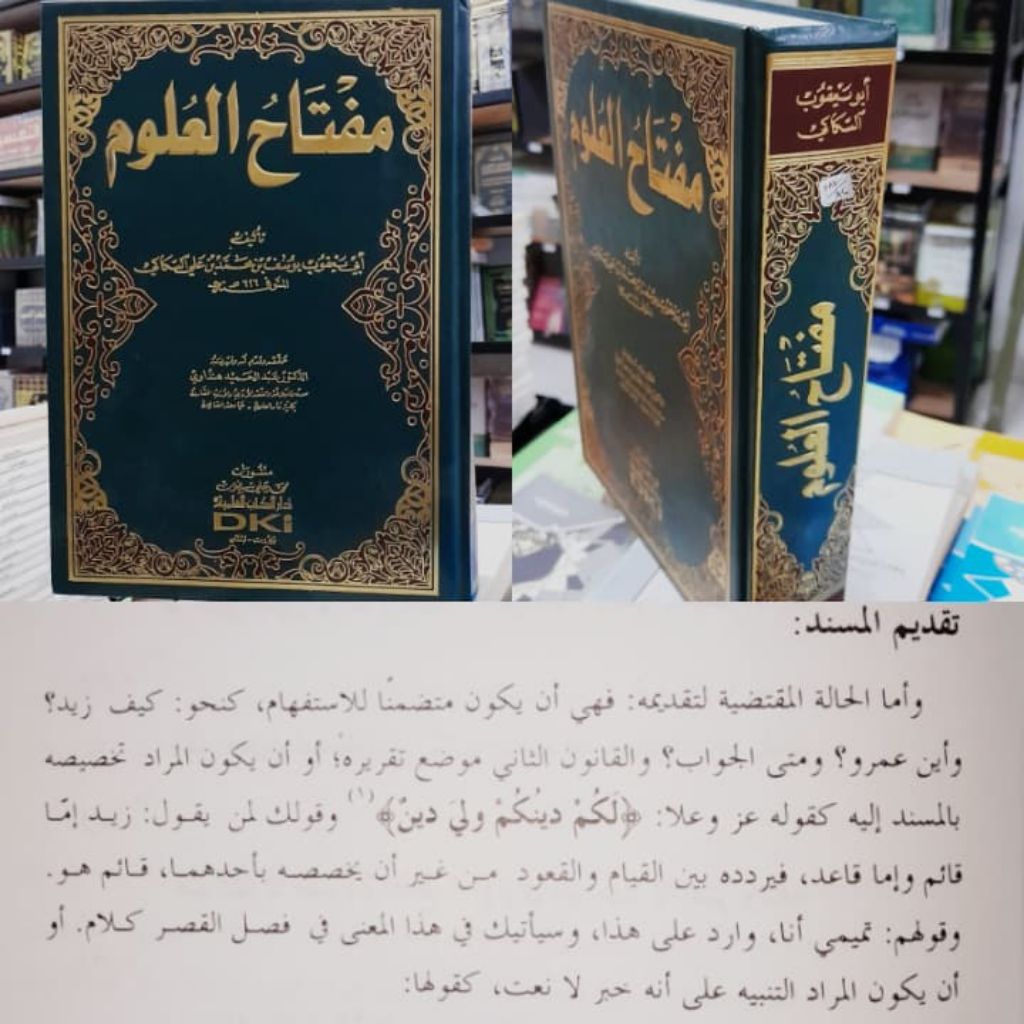 مفْتَاحُ العُلوم
تأليف
أبي يعقوب يوسف بن محمد بن علي السكاكي
المتوفى ٦٢٦ هـ
الدكتور عبد الحميد هنداوي
منشورات
دار الكتب العلمية
DKi
بيروت - لبنان
أبو يعقوب
السكاكي
مفتاح العلوم
مفْتَاحُ العُلوم
تقديم المسند:
وأما الحالة المقتضية لتقديمه: فهي أن يكون متضمنًا للاستفهام، كنحو: كيف زيد؟
وأين عمرو؟ ومتى الجواب؟ والقانون الثاني موضع تقريره؛ أو أن يكون المراد تخصيصه
بالمسند إليه كقوله عز وعلا: ﴿لَكُمْ دينُكُمْ وليَ دينٌ﴾(١) وقولك لمن يقول: زيد إمّا
قائم وإما قاعد، فيردده بين القيام والقعود من غير أن يخصصه بأحدهما، قائم هو.
وقولهم: تميمي أنا، وارد على هذا، وسيأتيك في هذا المعنى في فصل القصر كلام. أو
أن يكون المراد التنبيه على أنه خبر لا نعت، كقولها: